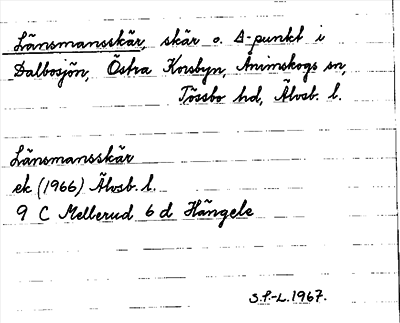 Länsmansskär, skär o. Δ-punkt i
Dalbosjön, Östra Korsbyn, Ånimskogs sn,
Tössbo hd, Älvsb. l.
Länsmansskär
ek (1966) Älvsb. l.
9 C Mellerud 6 d Hängele
S.F.-L. 1967.